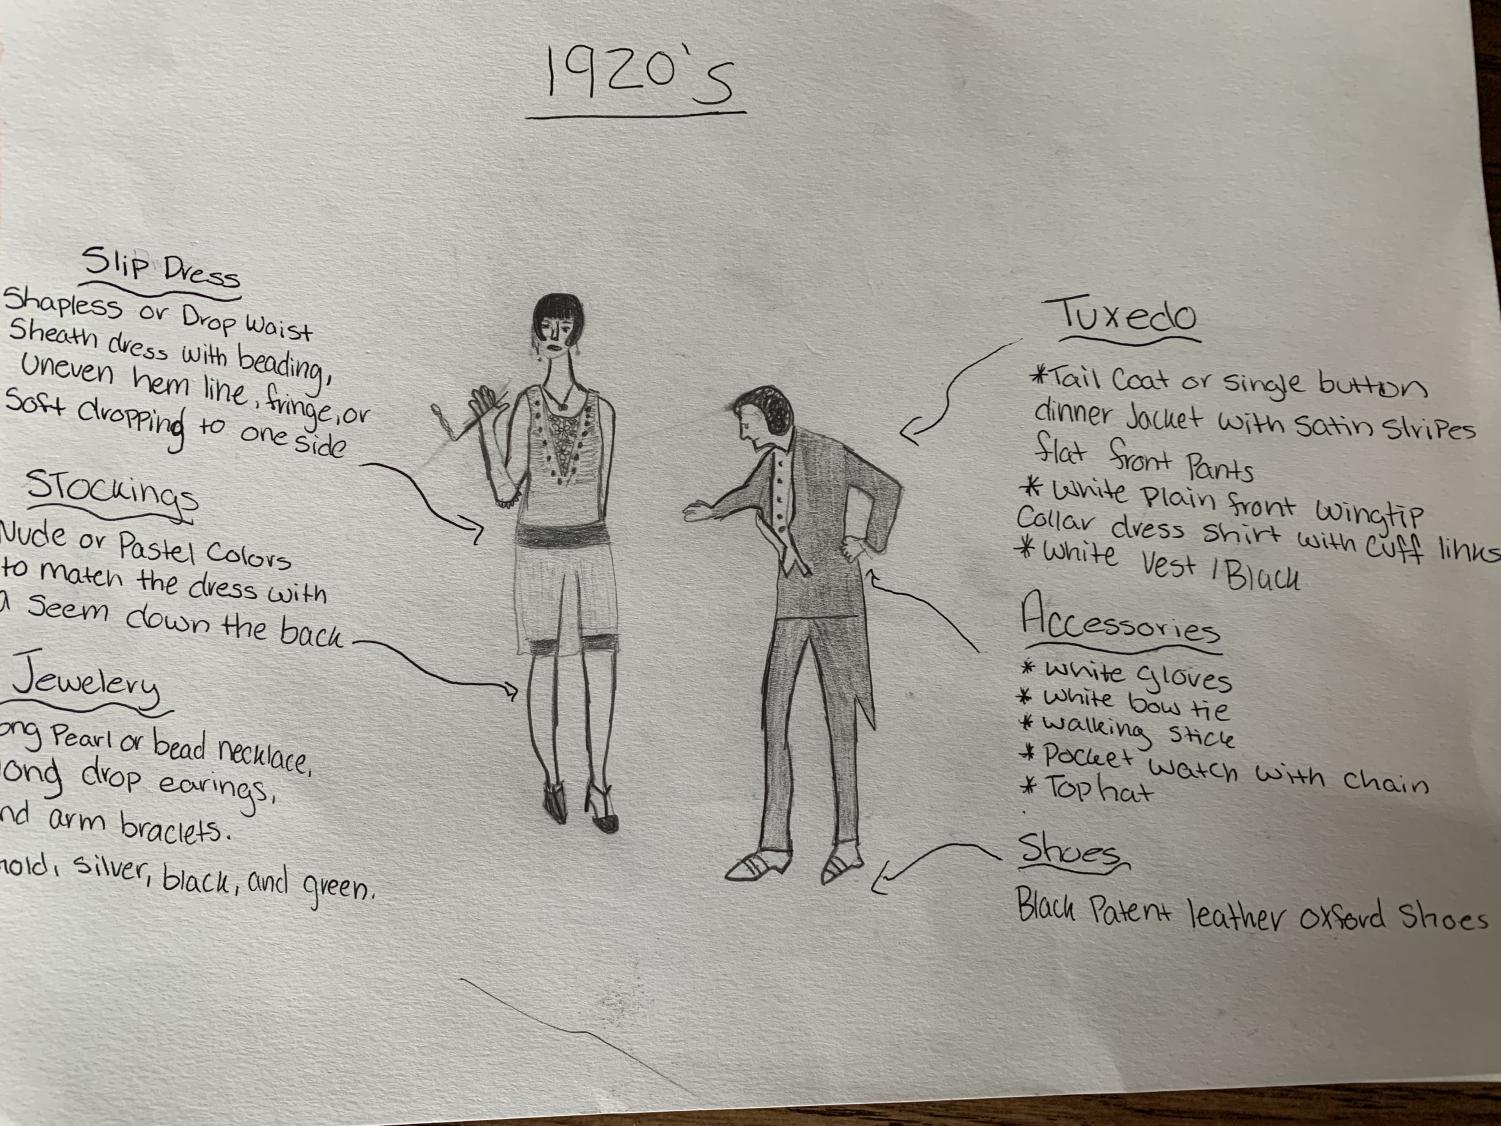 1920's
Slip Dress
Shapless or Drop Waist
Sheath dress with beading,
Uneven hem line, fringe, or
Soft dropping to one side
Stockings
Nude or Pastel Colors
to match the dress with
a seem down the back
Jewelery
ong Pearl or bead necklace,
ong drop earings,
nd arm braclets.
old, silver, black, and green.
Tuxedo
*Tail Coat or single button
dinner Jacket with satin stripes
flat front Pants
* White plain front wingtip
Collar dress shirt with cuff links
* White Vest / Black
Accessories
* White gloves
* White bow tie
* Walking stick
* Pocket watch with chain
* Top hat
Shoes
Black Patent leather oxford Shoes